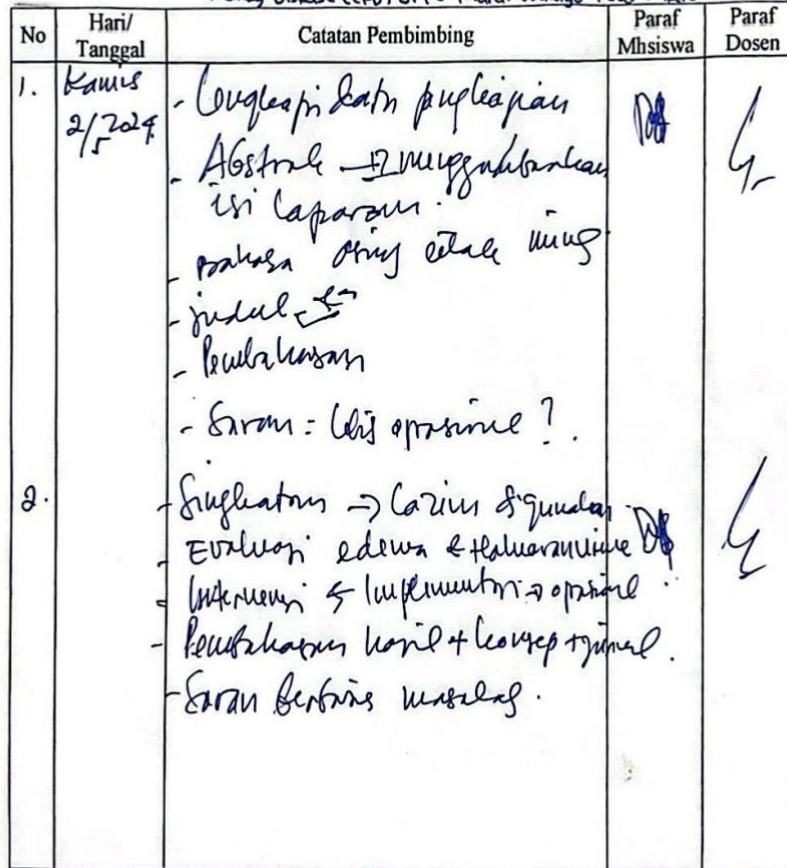 No
Hari/
Tanggal
Catatan Pembimbing
Paraf
Mhsiswa
Paraf
Dosen
1.
Kamis
2/5 2024
- Lengkapi data pengkajian
- Abstrak → menggambarkan
isi laporan.
- Bahasa asing cetak miring
- judul
- Pembahasan
- Saran = lbis oprasional ?.
2.
- Singkatan → lazim digunakan
- Evaluasi edema &
- Intervensi & Implementasi → oprasional
- Pembahasan hasil + konsep + jurnal.
- Saran berbasis masalah.